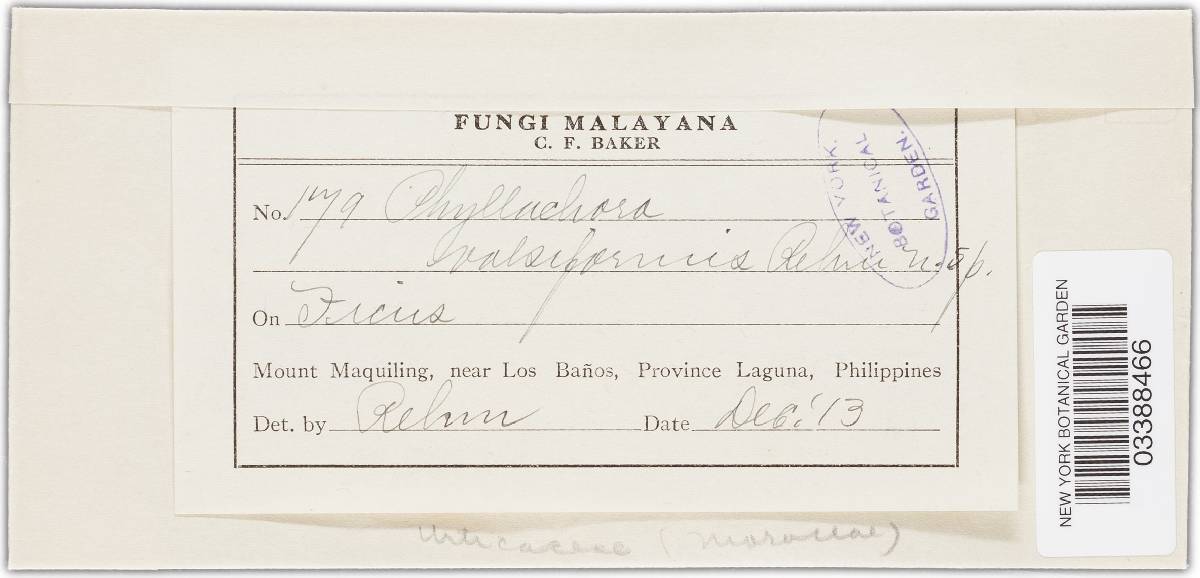 FUNGI MALAYANA
C. F. BAKER
No. 179 Phyllachora
valsiformis Rehm n. sp.
On Ficus
Mount Maquiling, near Los Baños, Province Laguna, Philippines
Det. by Rehm Date Dec. '13
NEW YORK
BOTANICAL
GARDEN.
NEW YORK BOTANICAL GARDEN
03388466
Urticaceae (Moraceae)